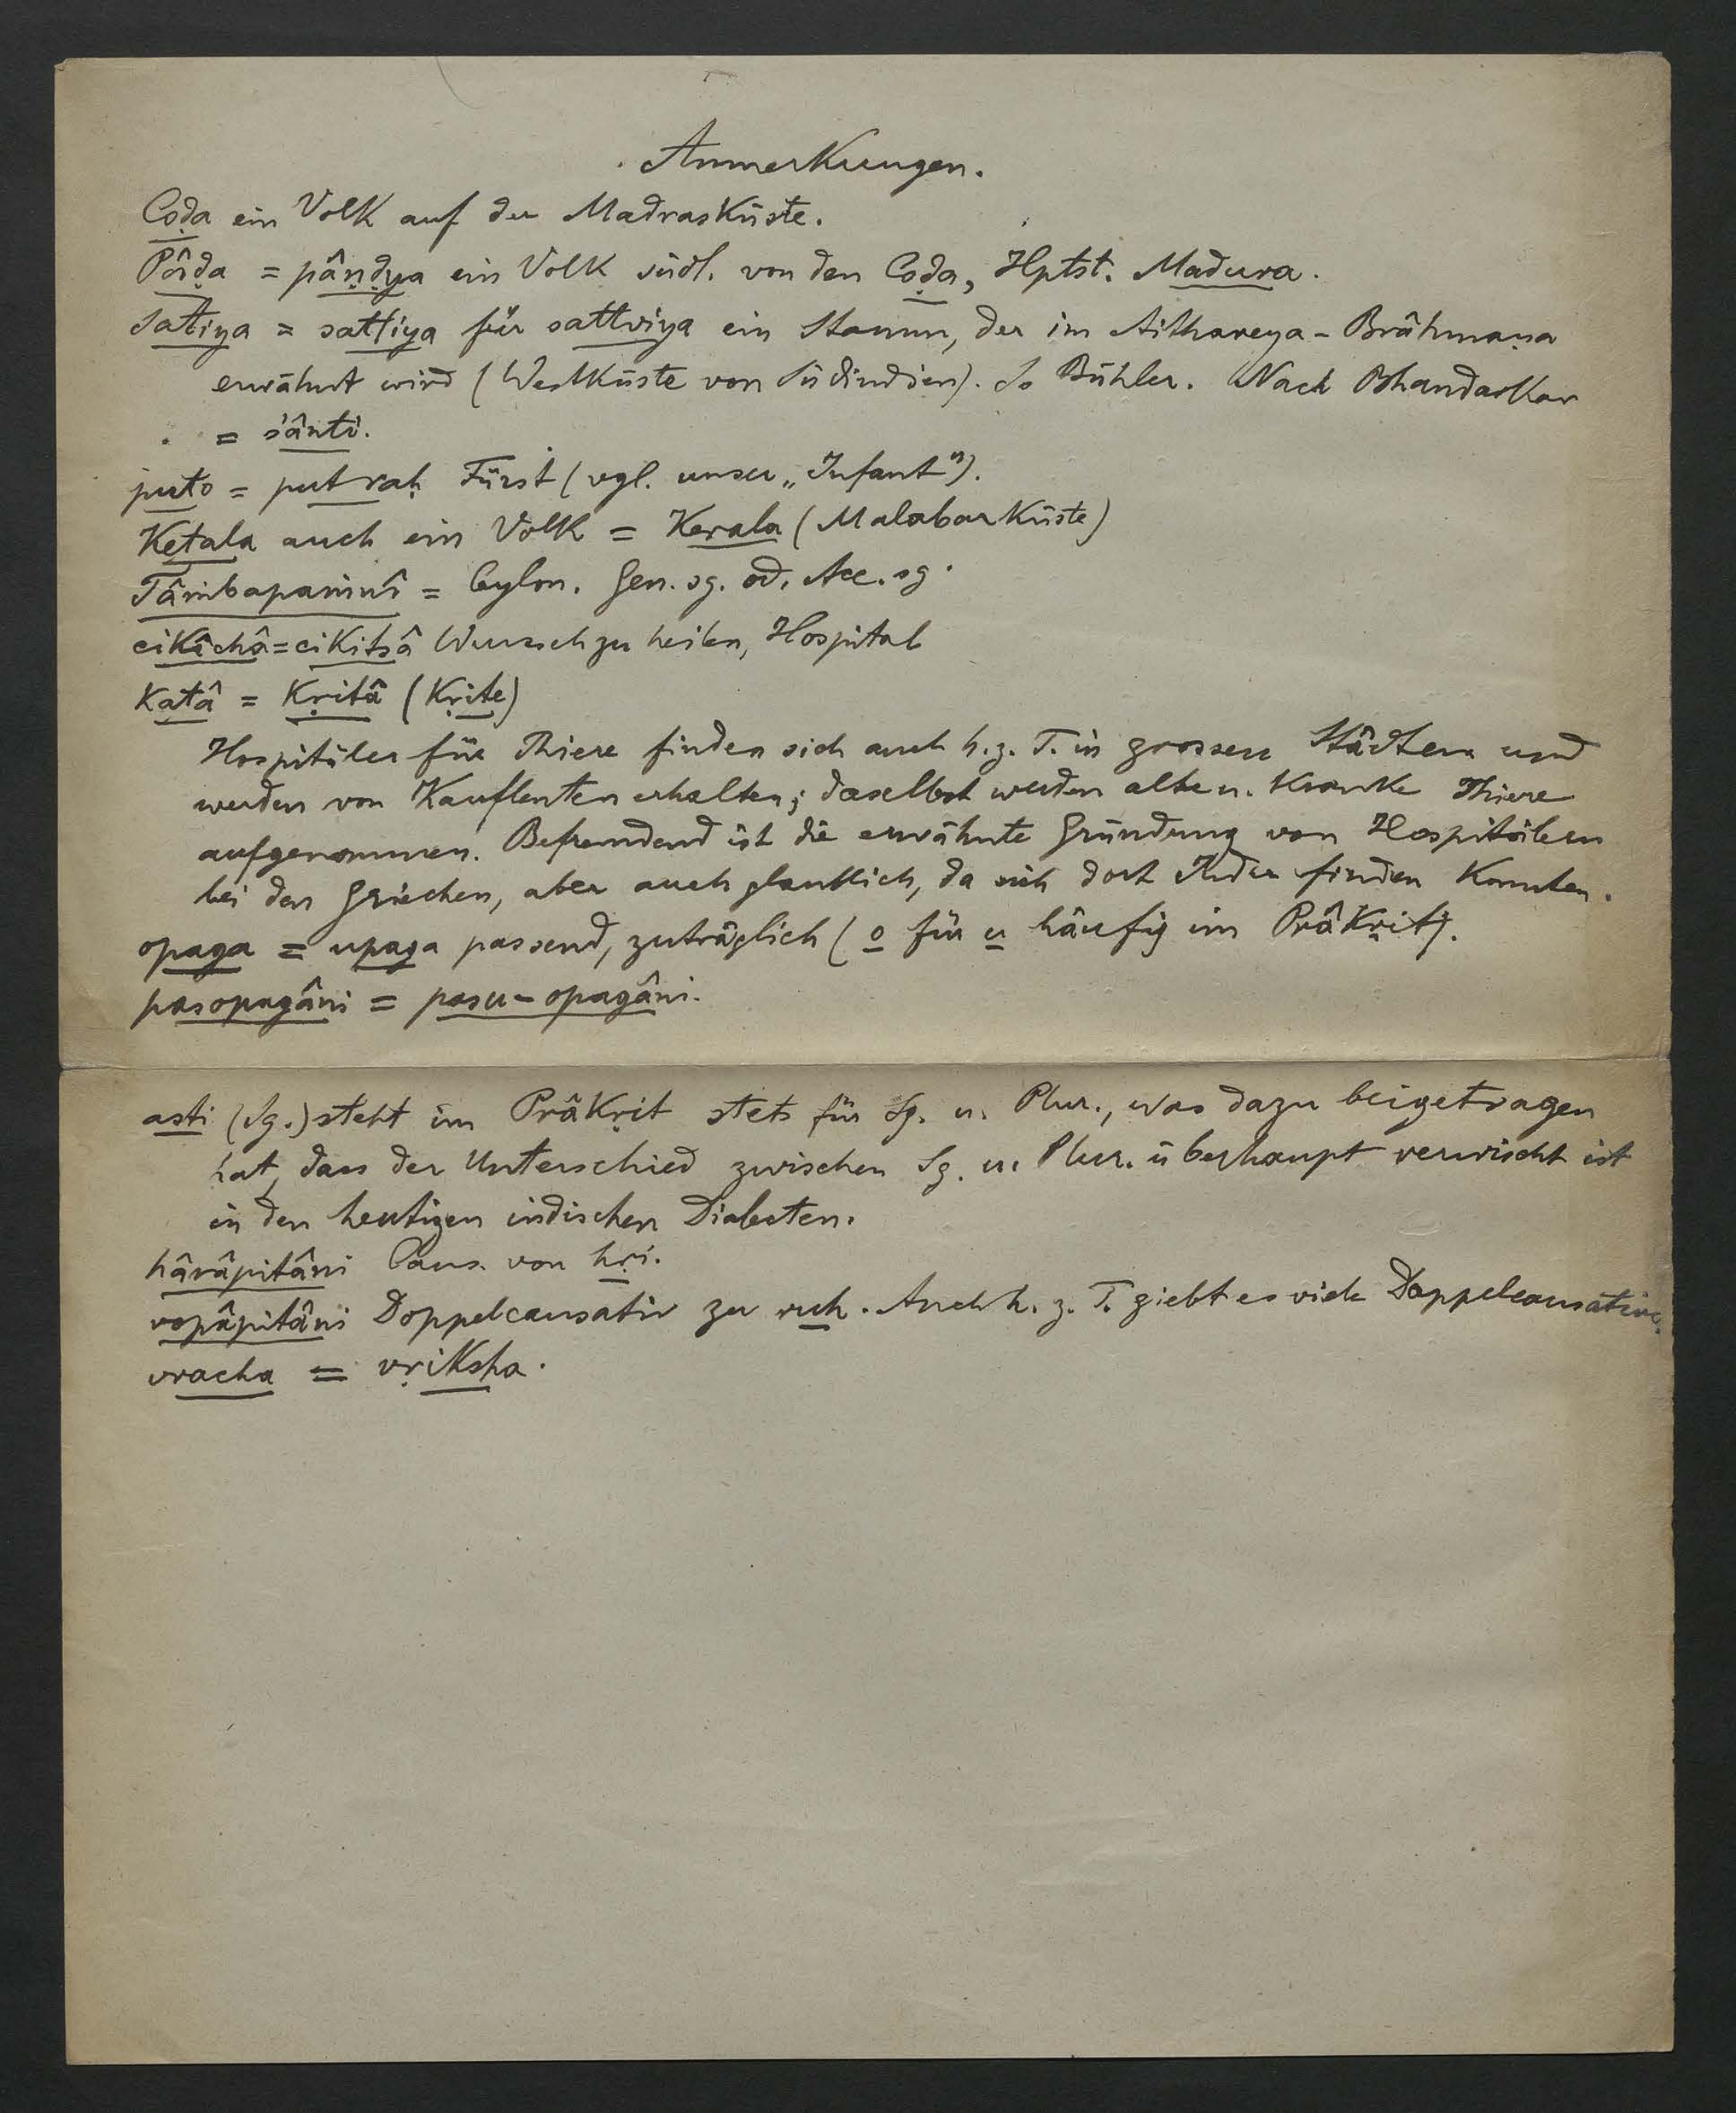 Anmerkungen.
Coḍa ein Volk auf der Madrasküste.
Pâḍa = pâṇḍya ein Volk südl. von den Coḍa, Hptst. Madura.
Satiya = sattiya für sattviya ein Stamm, der im Aithareya-Brâhmaṇa
erwähnt wird (Westküste von Südindien). So Bühler. Nach Bhandarkar
= śânti.
puto = putraḥ Fürst (vgl. unser „Infant").
Keṭala auch ein Volk = Kerala (Malabarküste)
= Ceylon. Gen. sg. od. Acc. sg.
cikîchâ = cikitsâ Wunsch zu heilen, Hospital
katâ = kṛitâ (kṛite)
Hospitäler für Thiere finden sich auch h. z. T. in grossen Städten und
werden von Kaufleuten erhalten; daselbst werden alte u. kranke Thiere
aufgenommen. Befremdend ist die erwähnte Gründung von Hospitälern
bei den Griechen, aber auch glaublich, da sich dort Inder finden konnten.
opaga = upaga passend, zuträglich (o für u häufig im Prâkṛit).
pasopagâni = pasu-opagâni.
asti (Sg.) steht im Prâkṛit stets für Sg. u. Plur., was dazu beigetragen
hat, dass der Unterschied zwischen Sg. u. Plur. überhaupt verwischt ist
in den heutigen indischen Dialecten.
hârâpitâni Caus. von hṛi.
ropâpitâni Doppelcausativ zu ruh. Auch h. z. T. giebt es viele Doppelcausative.
vracha = vṛiksha.